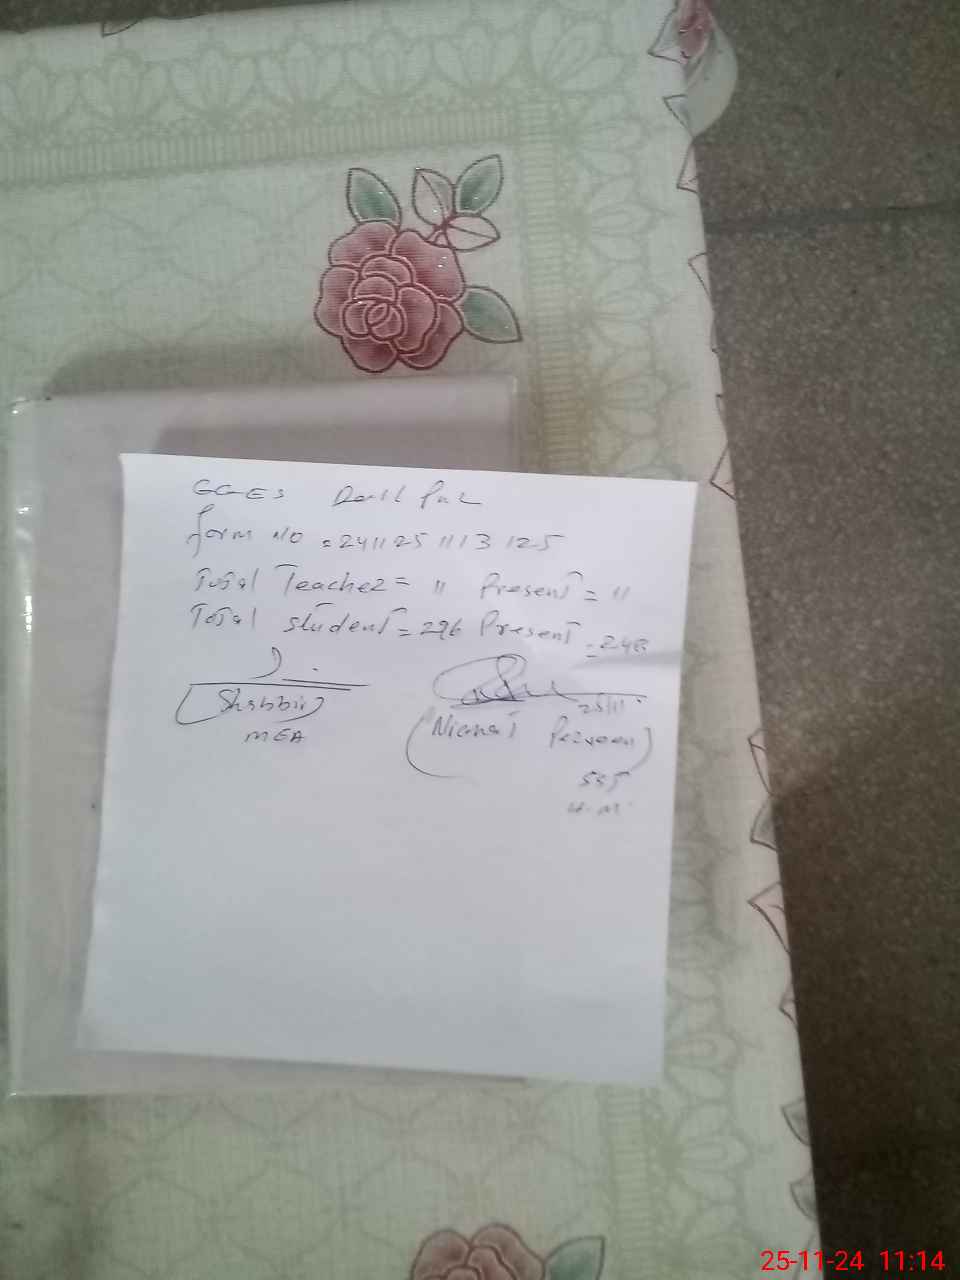 GGES
Form NO = 241125 1113 125
Total Teacher = 11 Present = 11
Total student = 296 Present = 248
(Shabbir)
MEA
25/11
Perveen)
SST
H.M.
25-11-24 11:14